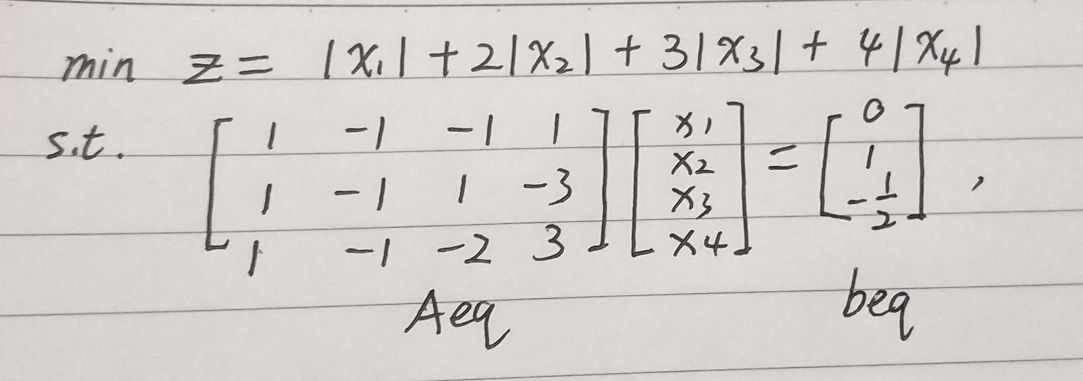 min z = |x₁| + 2|x₂| + 3|x₃| + 4|x₄|
s.t. [1 -1 -1 1; 1 -1 1 -3; 1 -1 -2 3] [x1; x2; x3; x4] = [0; 1; -1/2],
Aeq beq